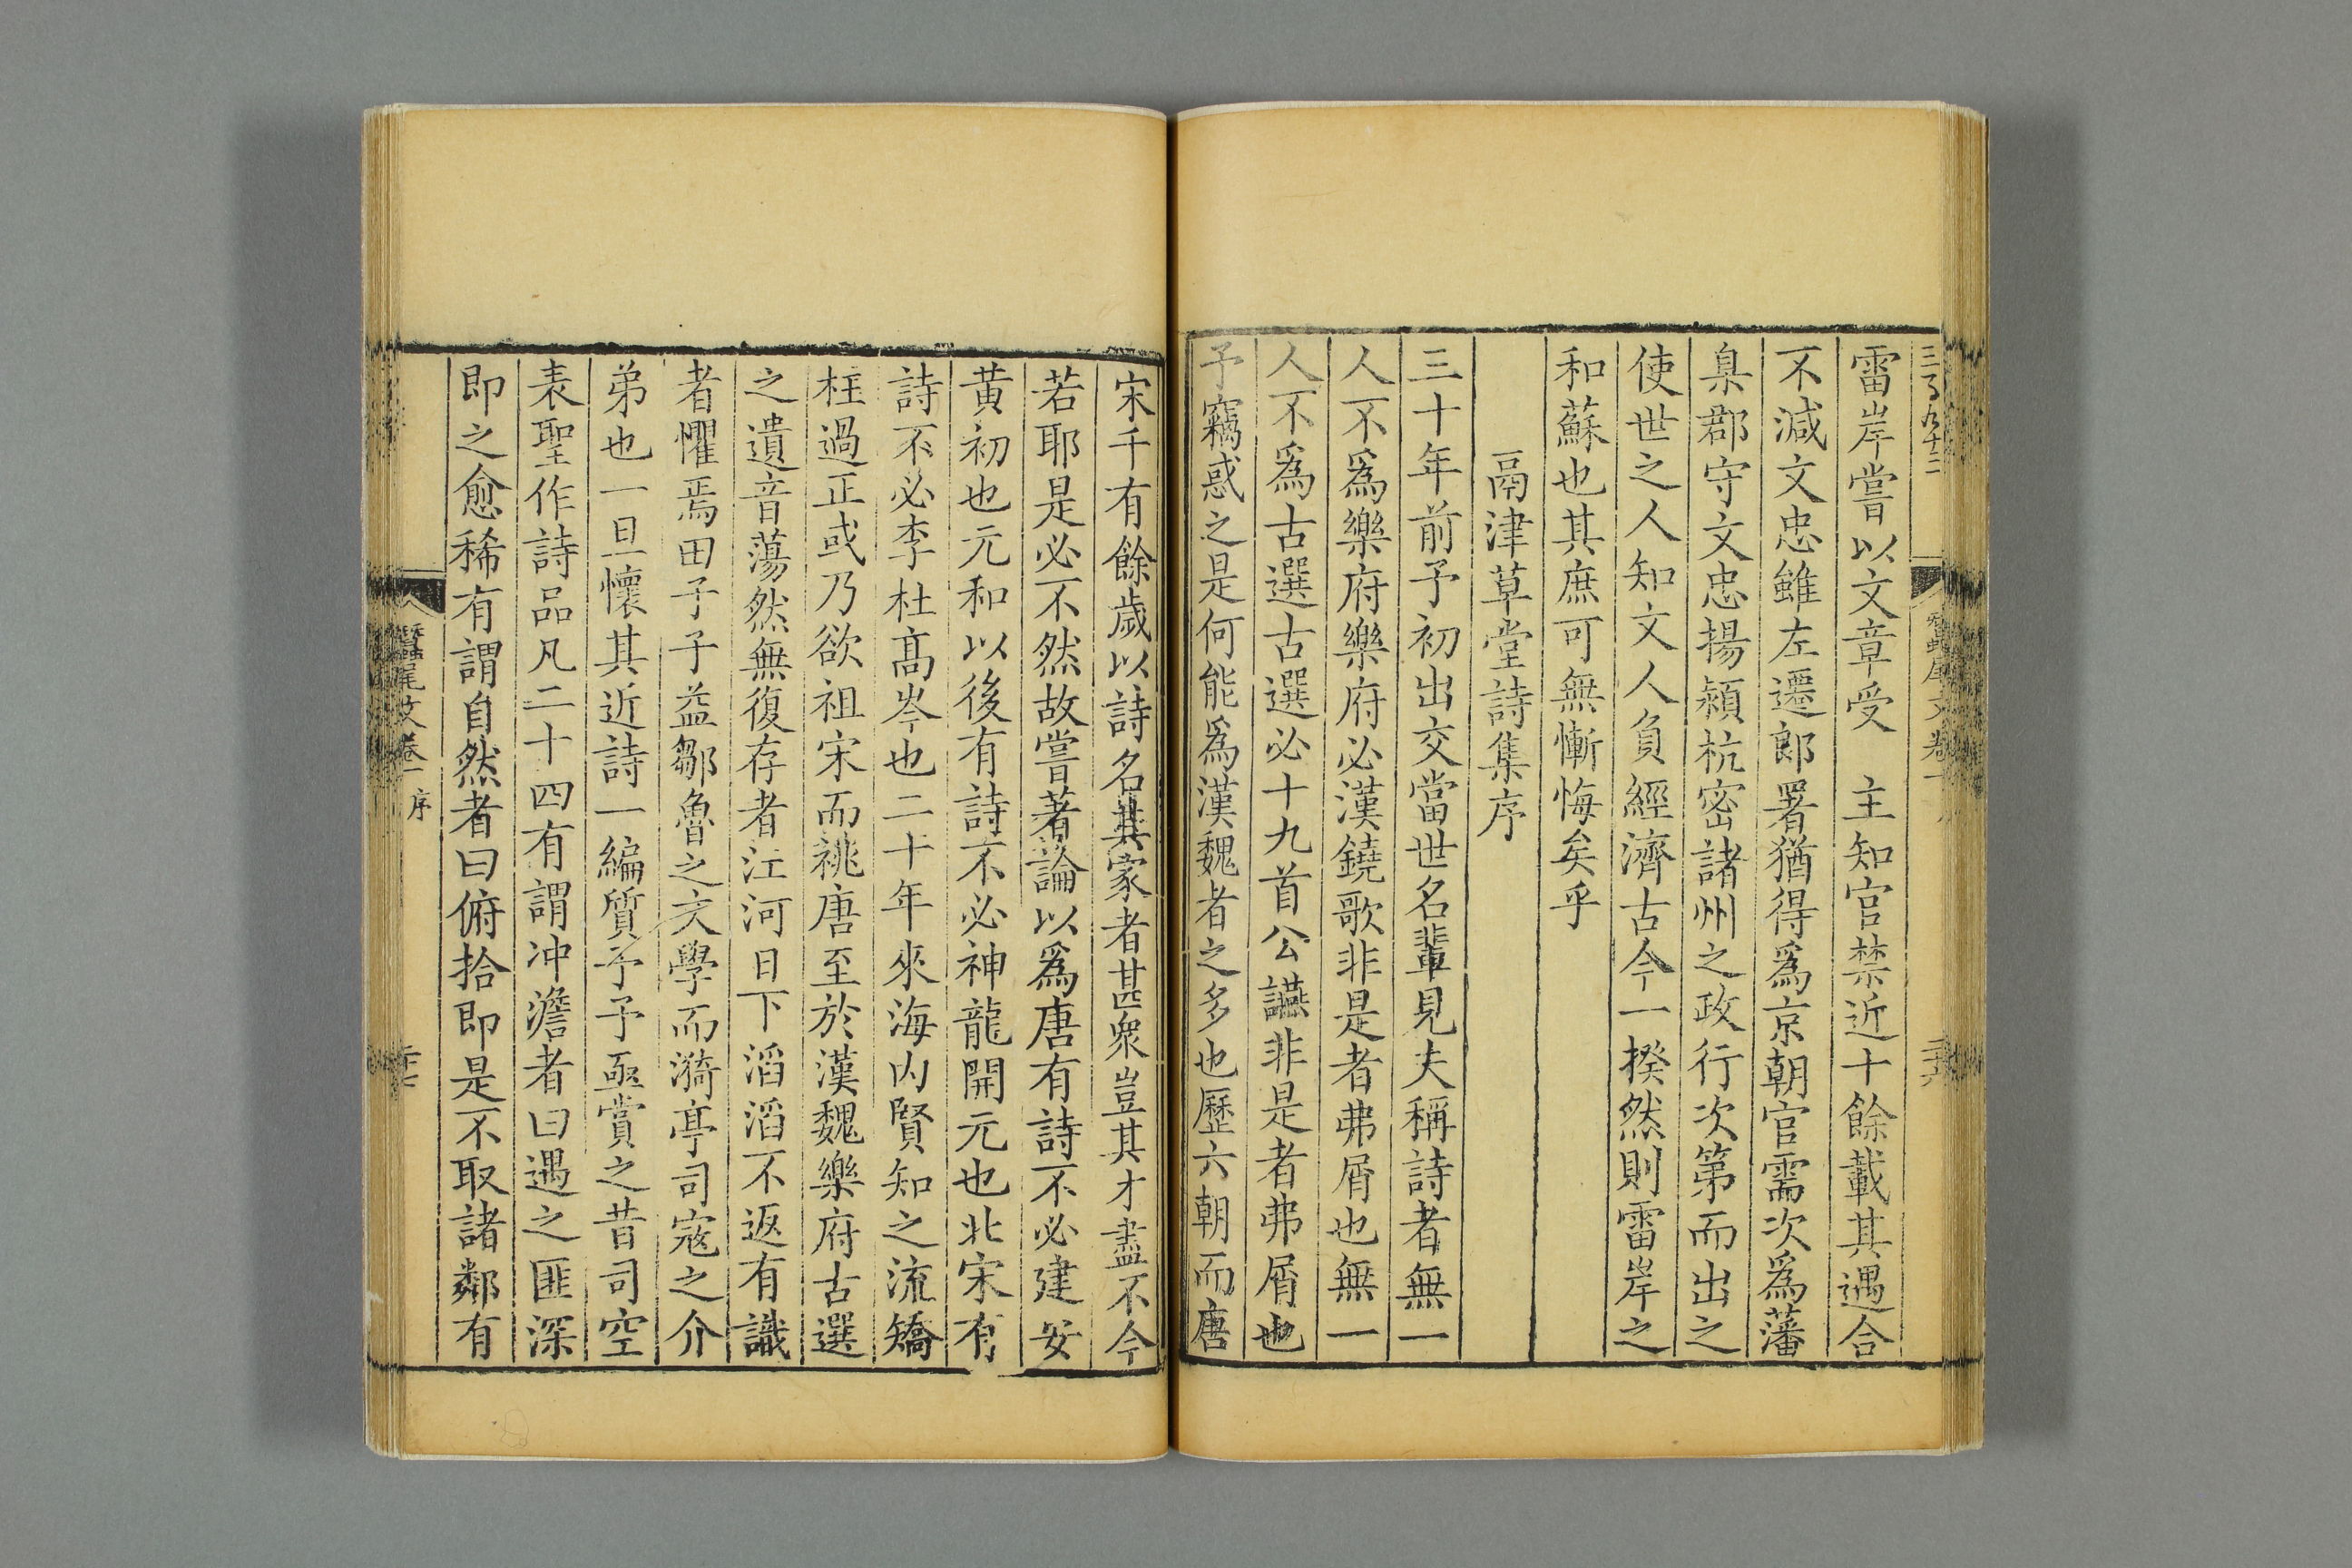 三百九十二
蠶尾文卷一
二十六
雷岸嘗以文章受　主知官禁近十餘載其遇合
不減文忠雖左遷郎署猶得爲京朝官需次爲藩
臬郡守文忠揚潁杭密諸州之政行次第而出之
使世之人知文人負經濟古今一揆然則雷岸之
和蘇也其庶可無慚悔矣乎
鬲津草堂詩集序
三十年前予初出交當世名輩見夫稱詩者無一
人不爲樂府樂府必漢鐃歌非是者弗屑也無一
人不爲古選古選必十九首公讌非是者弗屑也
予竊惑之是何能爲漢魏者之多也歷六朝而唐
宋千有餘歲以詩名其家者甚衆豈其才盡不今
若耶是必不然故嘗著論以爲唐有詩不必建安
黃初也元和以後有詩不必神龍開元也北宋有
詩不必李杜高岑也二十年來海內賢知之流矯
枉過正或乃欲祖宋而祧唐至於漢魏樂府古選
之遺音蕩然無復存者江河日下滔滔不返有識
者懼焉田子子益鄒魯之文學而漪亭司寇之介
弟也一旦懷其近詩一編質予予亟賞之昔司空
表聖作詩品凡二十四有謂沖澹者曰遇之匪深
即之愈稀有謂自然者曰俯拾即是不取諸鄰有
蠶尾文卷一
序
二十七